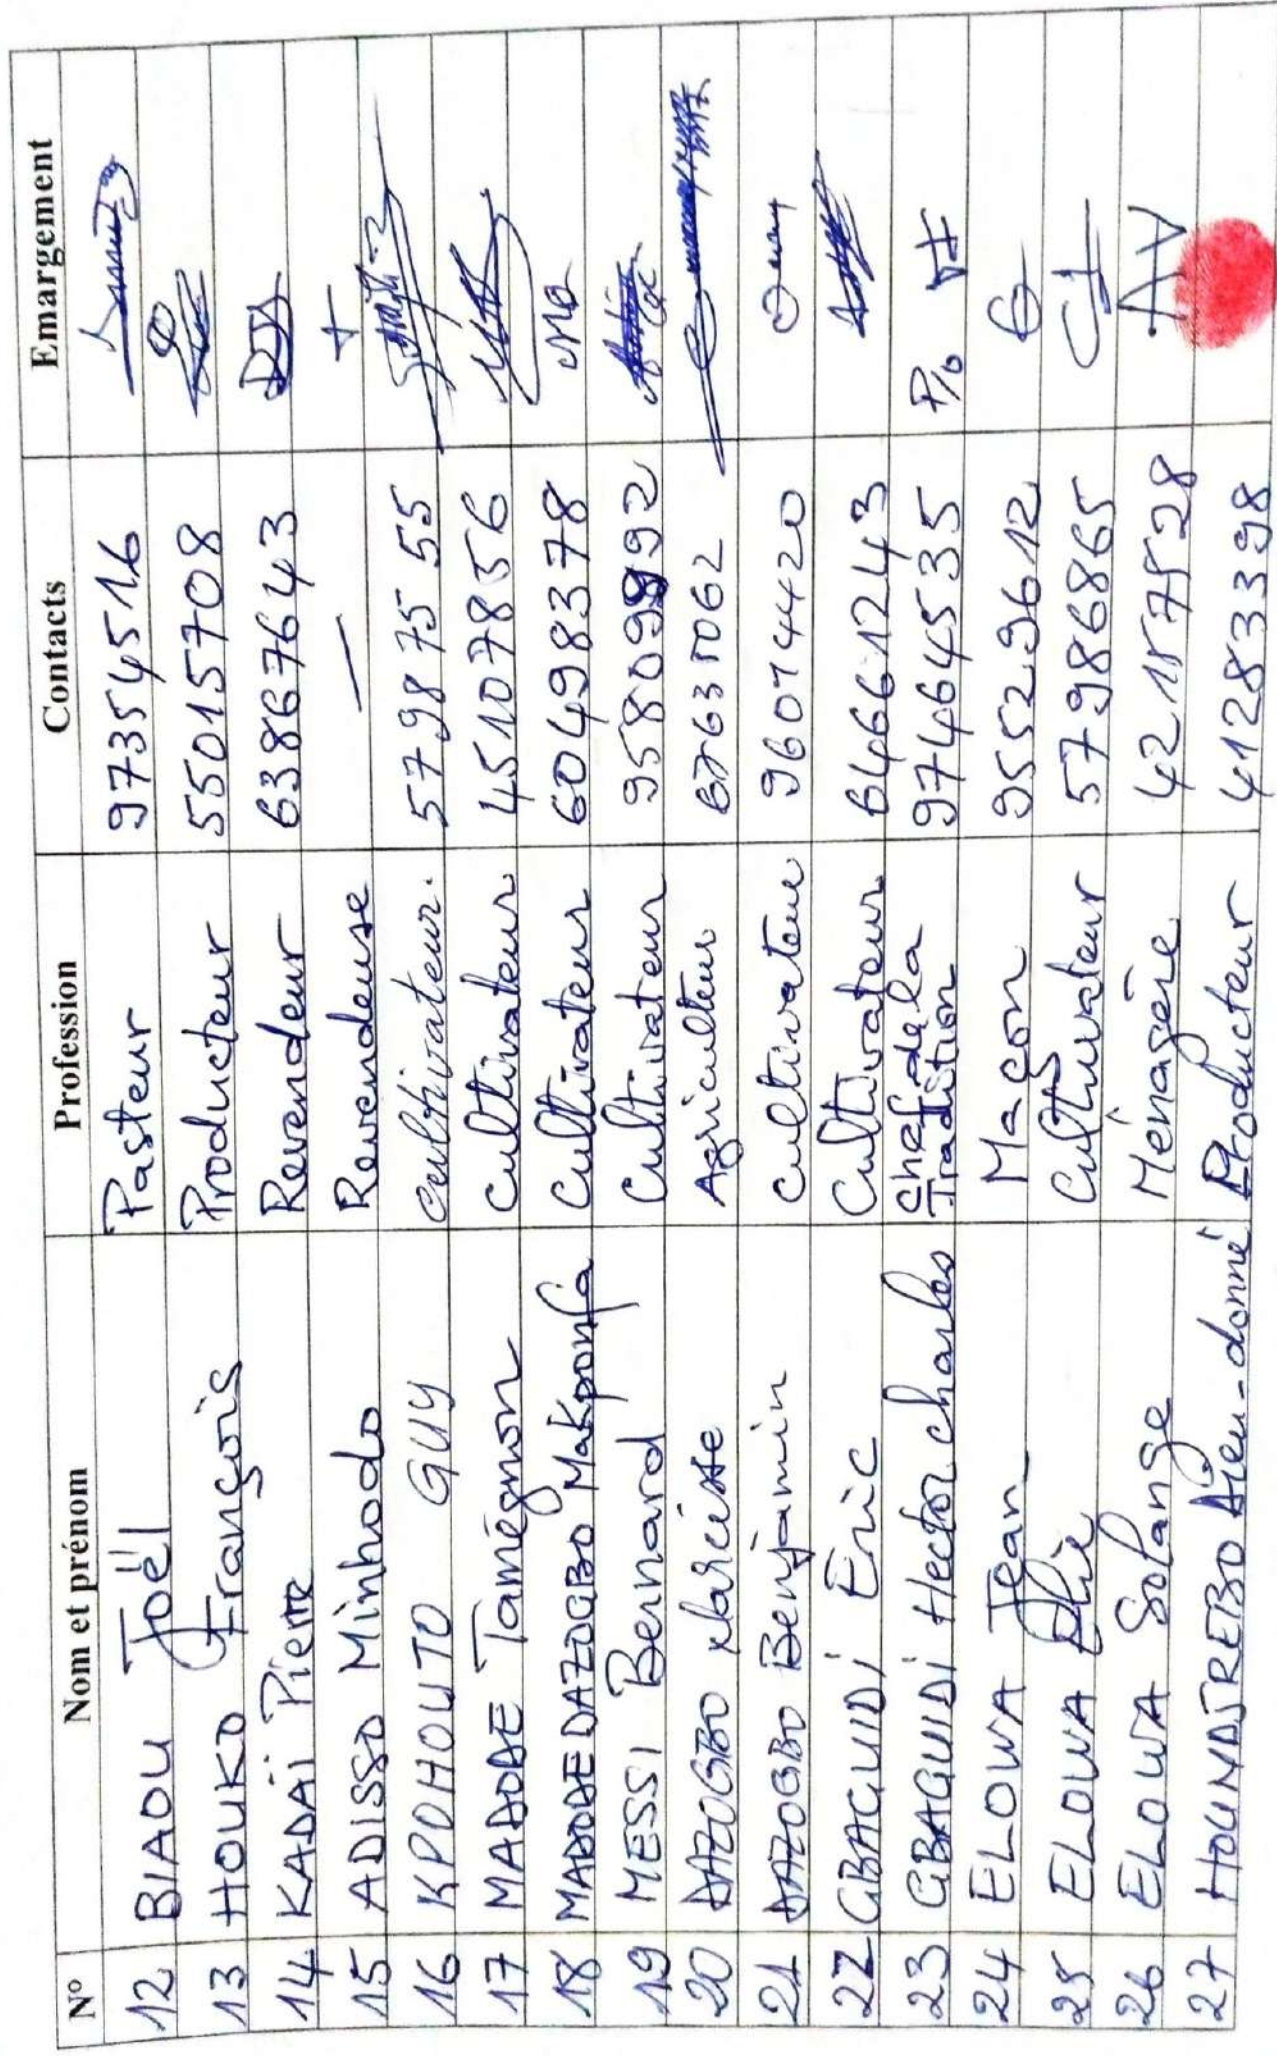 N° Nom et prénom Profession Contacts Emargement
12 BIAOU Joël Pasteur 97354516
13 HOUKO François Producteur 55015708
14 KADAÏ Pierre Revendeur 63867643
15 ADISSO Minhodo Revendeuse —
16 KPOHOUTO GUY Cultivateur. 57987555
17 MADODE Tamégnon Cultivateur 45107856
18 MADODE DAZOGBO Makponfa Cultivateur 60498378
19 MESSI Bernard Cultivateur
20 DAZOGBO Narcisse Agriculteur 67635062
21 DAZOGBO Benjamin Cultivateur 96074420
22 GBAGUIDI Eric Cultivateur 64661243
23 GBAGUIDI Hector charles chef de la Tradition 97464535 P/o
24 ELOWA Jean Maçon 95529612
25 ELOWA Elie Cultivateur 57986865
26 ELOWA Solange Ménagère 42187528 AV
27 HOUNDJREBO Dieu-donné Producteur 41283398